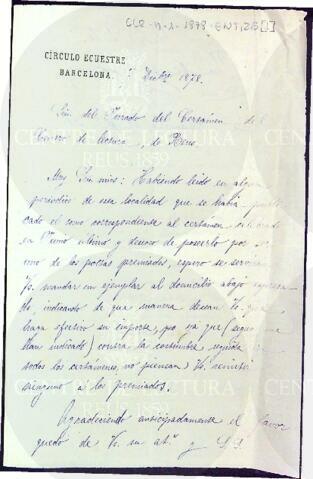 CÍRCULO ECUESTRE
BARCELONA.
Dicbre 1878.
Sres del Jurado del Certámen del
Centro de lectura, de Reus.
Muy Sres mios: Habiendo leido en algun
periódico de esa localidad que se habia publi-
cado el tomo correspondiente al certámen celebrado
en último y deseoso de poseerlo por ser
uno de los poetas premiados, espero se servirán
Vs. mandar un ejemplar al domicilio abajo expresa-
do, indicando de que manera desean Vs. que
haga efectivo su importe, pues ya que (segun me
han indicado) contra la costumbre seguida en
todos los certámenes, no piensan Vs. remitir
ninguno a los premiados.
Agradeciendo anticipadamente el favor
quedo de Vs. su at.º y S.S.
CENTRE DE LECTURA
REUS, 1859